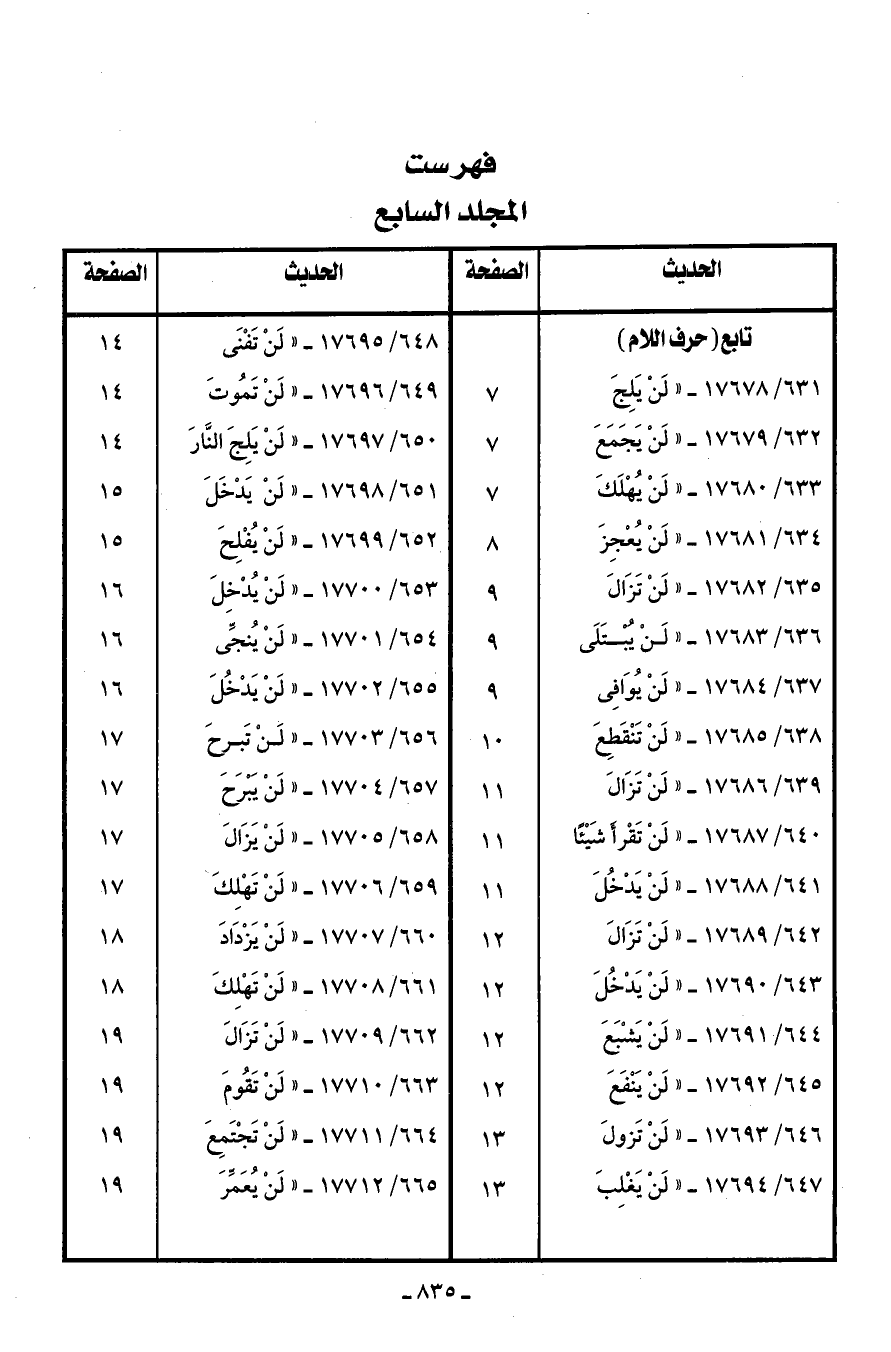 فهرست
المجلد السابع
الحديث الصفحة الحديث الصفحة
تابع (حرف اللام) ٦٤٨/ ١٧٦٩٥ ـ « لَنْ تَفْنَى ١٤
٦٣١/ ١٧٦٧٨ ـ « لَنْ يَلِجَ ٧ ٦٤٩/ ١٧٦٩٦ ـ « لَنْ تَمُوتَ ١٤
٦٣٢/ ١٧٦٧٩ ـ « لَنْ يَجَمَعَ ٧ ٦٥٠/ ١٧٦٩٧ ـ « لَنْ يَلِجَ النَّارَ ١٤
٦٣٣/ ١٧٦٨٠ ـ « لَنْ يُهْلَكَ ٧ ٦٥١/ ١٧٦٩٨ ـ « لَنْ يَدْخَلَ ١٥
٦٣٤/ ١٧٦٨١ ـ « لَنْ يُعْجِزَ ٨ ٦٥٢/ ١٧٦٩٩ ـ « لَنْ يُفْلِحَ ١٥
٦٣٥/ ١٧٦٨٢ ـ « لَنْ تَزَالَ ٩ ٦٥٣/ ١٧٧٠٠ ـ « لَنْ يُدْخِلَ ١٦
٦٣٦/ ١٧٦٨٣ ـ « لَـنْ يُبْـتَلَى ٩ ٦٥٤/ ١٧٧٠١ ـ « لَنْ يُنجِّى ١٦
٦٣٧/ ١٧٦٨٤ ـ « لَنْ يُوَافِى ٩ ٦٥٥/ ١٧٧٠٢ ـ « لَنْ يَدْخُلَ ١٦
٦٣٨/ ١٧٦٨٥ ـ « لَنْ تَنْقَطِعَ ١٠ ٦٥٦/ ١٧٧٠٣ ـ « لَـنْ تَبـرحَ ١٧
٦٣٩/ ١٧٦٨٦ ـ « لَنْ تَزَالَ ١١ ٦٥٧/ ١٧٧٠٤ ـ « لَنْ يَبْرَحَ ١٧
٦٤٠/ ١٧٦٨٧ ـ « لَنْ تَقْرأَ شَيْئًا ١١ ٦٥٨/ ١٧٧٠٥ ـ « لَنْ يَزَالَ ١٧
٦٤١/ ١٧٦٨٨ ـ « لَنْ يَدْخُلَ ١١ ٦٥٩/ ١٧٧٠٦ ـ « لَنْ تَهْلِكَ ١٧
٦٤٢/ ١٧٦٨٩ ـ « لَنْ تَزَالَ ١٢ ٦٦٠/ ١٧٧٠٧ ـ « لَنْ يَزْدَادَ ١٨
٦٤٣/ ١٧٦٩٠ ـ « لَنْ يَدْخُلَ ١٢ ٦٦١/ ١٧٧٠٨ ـ « لَنْ تَهْلِكَ ١٨
٦٤٤/ ١٧٦٩١ ـ « لَنْ يَشْبَعَ ١٢ ٦٦٢/ ١٧٧٠٩ ـ « لَنْ تَزَالَ ١٩
٦٤٥/ ١٧٦٩٢ ـ « لَنْ يَنْفَعَ ١٢ ٦٦٣/ ١٧٧١٠ ـ « لَنْ تَقُومَ ١٩
٦٤٦/ ١٧٦٩٣ ـ « لَنْ تَزولَ ١٣ ٦٦٤/ ١٧٧١١ ـ « لَنْ تَجْتَمِعَ ١٩
٦٤٧/ ١٧٦٩٤ ـ « لَنْ يَغْلِبَ ١٣ ٦٦٥/ ١٧٧١٢ ـ « لَنْ يُعَمِّرَ ١٩
ـ ٨٣٥ ـ